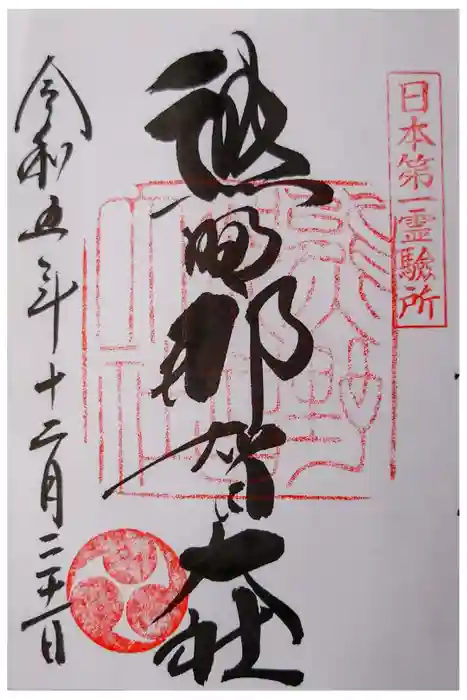 日本第一霊驗所
熊野那智大社
令和五年十二月二十一日